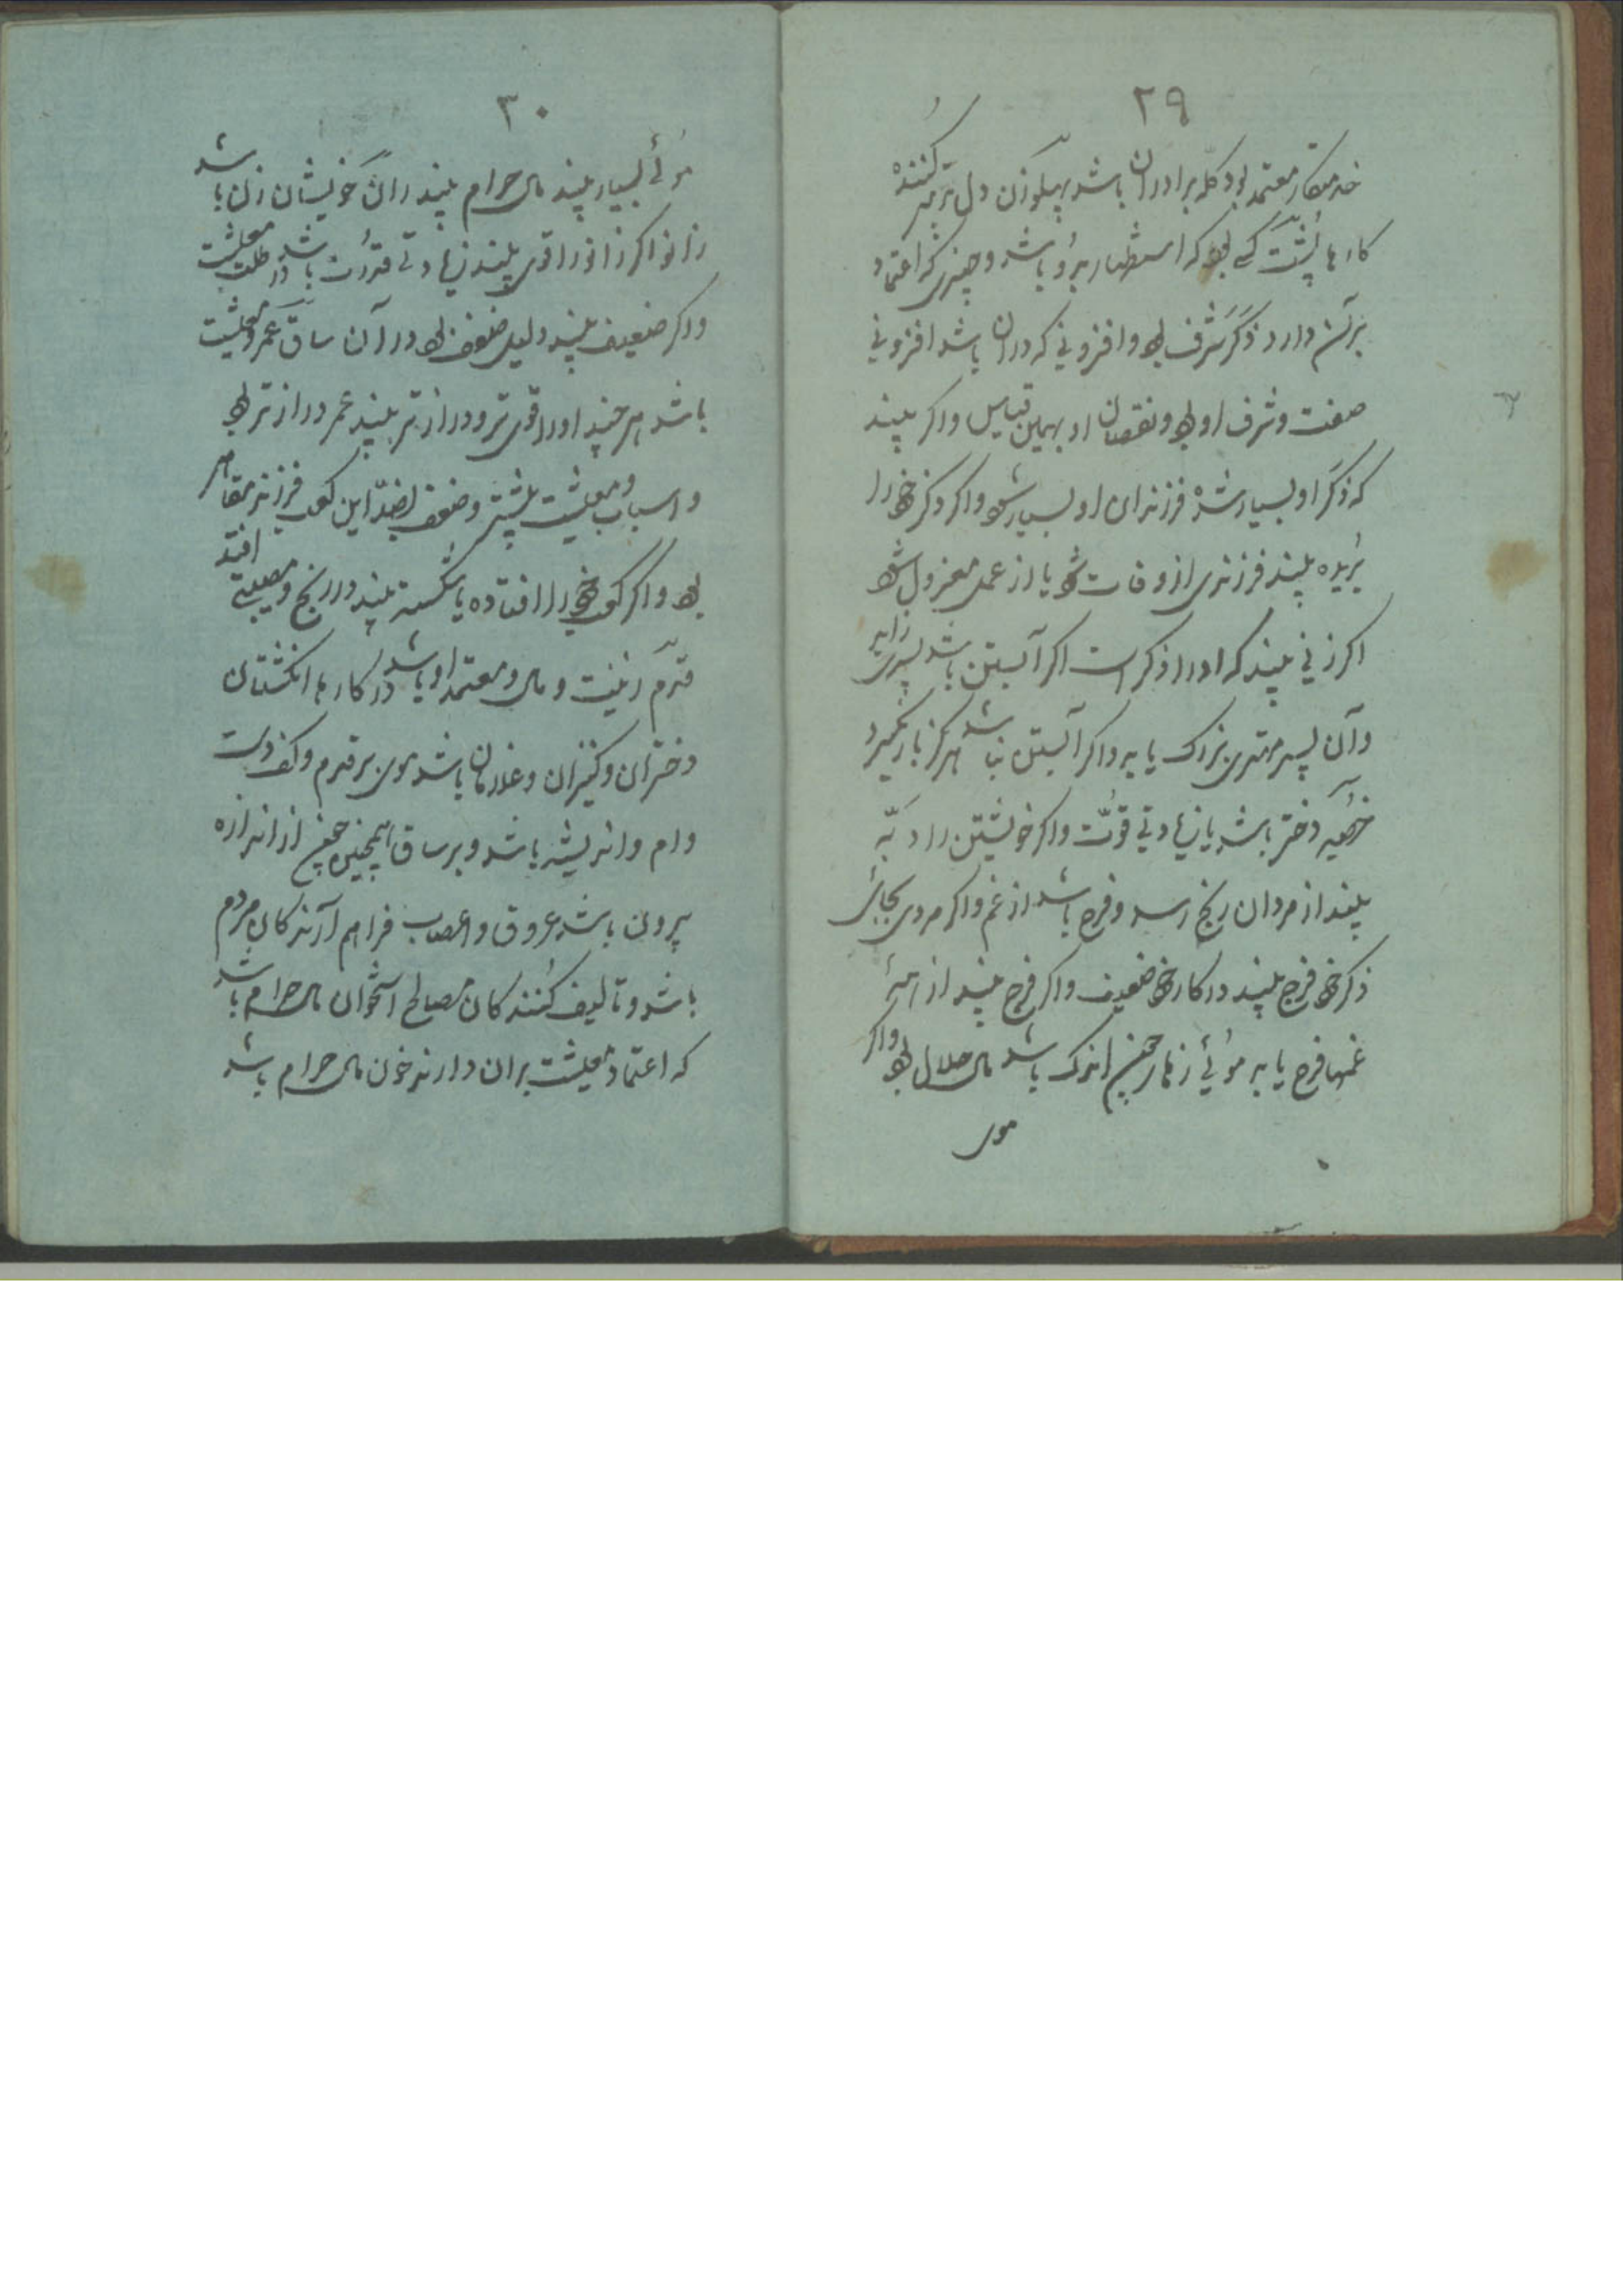 ۲۹
خدمتکار معتمد بود کله برادران باشد پهلو زن دل تدبیر کننده
کارها پشت کسی بود که استظهار برو باشد و چیزی که اعتماد
بر آن دارد ذکر شرف بود و افزونی که در آن باشد افزونی
صفت و شرف او بود و نقصان او بهمین قیاس و اکر بیند
که ذکر او بسیار شده فرزندان او بسیار شود و اکر ذکر خود را
بریده بیند فرزندی از و فات شود یا از عمل معزول شود
اکر زنی بیند که او را ذکر است اکر آبستن باشد پسری زاید
و آن پسر مهتری بزرک یابد و اکر آبستن نباشد هرکز بار نکیرد
خصیه دختر باشد یا زیادتی قوّت و اکر خویشتن را دبّه
بیند از مردان رنج رسد و فرح باشد از غم و اکر مردی بجای
ذکر خود فرج بیند در کار خود ضعیف و اکر فرج بیند از همۀ
غمها فرح یابد موئی زهار چون اندک باشد مال حلال بود و اکر
موی
۳۰
موئی بسیار بیند مال حرام بیند ران خویشان زن باشد
زانو اکر زانو را قوی بیند زیادتی قدرت باشد در طلب معیشت
و اکر ضعیف بیند دلیل ضعف بود در آن ساق عمر و معیشت
باشد هر چند او را قوی تر و دراز تر بیند عمر دراز تر بود
و اسباب و معیشت بیشتر و ضعف بضدّ این کعب فرزند مقامر
بود و اکر کعب خود را افتاده یا شکسته بیند در رنج و مصیبتی افتد
قدم زینت و مال و معتمد او باشد در کارها انکشتان
دختران و کنیزان و غلامان باشد موی بر قدم و کف دست
وام و اندیشه باشد و بر ساق همچنین چون از اندازه
بیرون باشد عروق و اعصاب فراهم آرندکان مردم
باشد و تألیف کنندکان مصالح استخوان مال حرام باشد
که اعتماد معیشت بران دارند خون مال حرام باشد